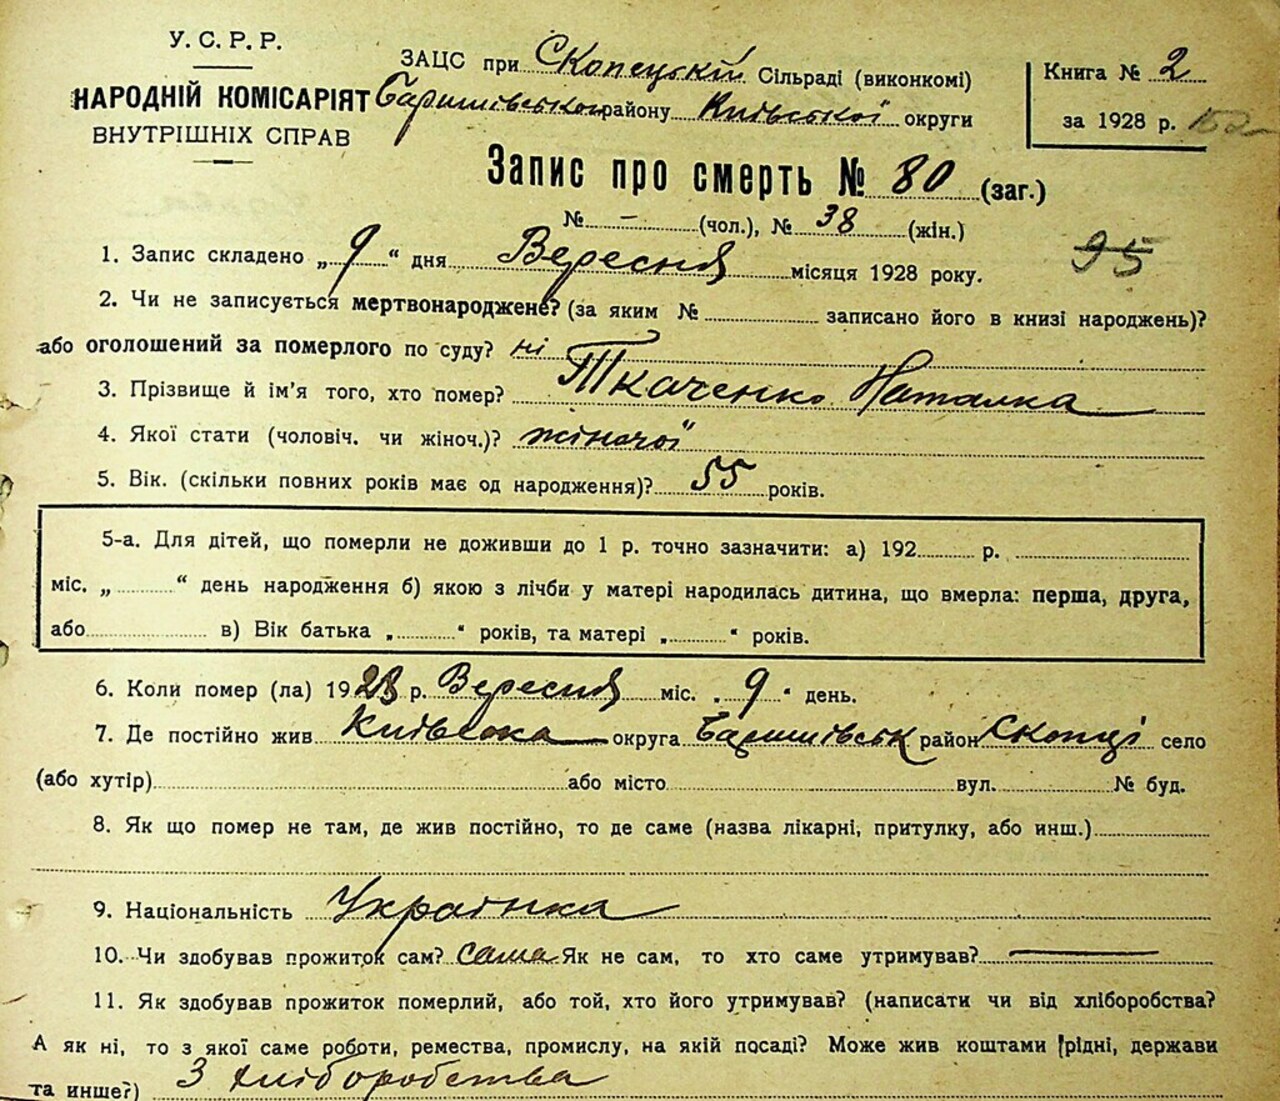 У.С.Р.Р.
НАРОДНІЙ КОМІСАРІЯТ
ВНУТРІШНІХ СПРАВ
ЗАЦС при Скопецькій Сільраді (виконкомі)
Баришівського району Київської округи
Книга № 2
за 1928 р. 152
Запис про смерть № 80 (заг.)
№ – (чол.), № 38 (жін.)
95
1. Запис складено „ 9 “ дня Вересня місяця 1928 року.
2. Чи не записується мертвонароджене? (за яким № записано його в книзі народжень)?
або оголошений за померлого по суду? ні
3. Прізвище й ім'я того, хто помер? Ткаченко Наталка
4. Якої стати (чоловіч. чи жіноч.)? жіночої
5. Вік. (скільки повних років має од народження)? 55 років.
5-а. Для дітей, що померли не доживши до 1 р. точно зазначити: а) 192 р.
міс. „ “ день народження б) якою з лічби у матері народилась дитина, що вмерла: перша, друга,
або в) Вік батька „ “ років, та матері „ “ років.
6. Коли помер (ла) 1928 р. Вересня міс. „ 9 “ день.
7. Де постійно жив Київська округа Баришівськ район Скопці село
(або хутір) або місто вул. № буд.
8. Як що помер не там, де жив постійно, то де саме (назва лікарні, притулку, або инш.)
9. Національність Українка
10. Чи здобував прожиток сам? сама Як не сам, то хто саме утримував? —
11. Як здобував прожиток померлий, або той, хто його утримував? (написати чи від хліборобства?
А як ні, то з якої саме роботи, ремества, промислу, на якій посаді? Може жив коштами рідні, держави
та инше?) З хліборобства